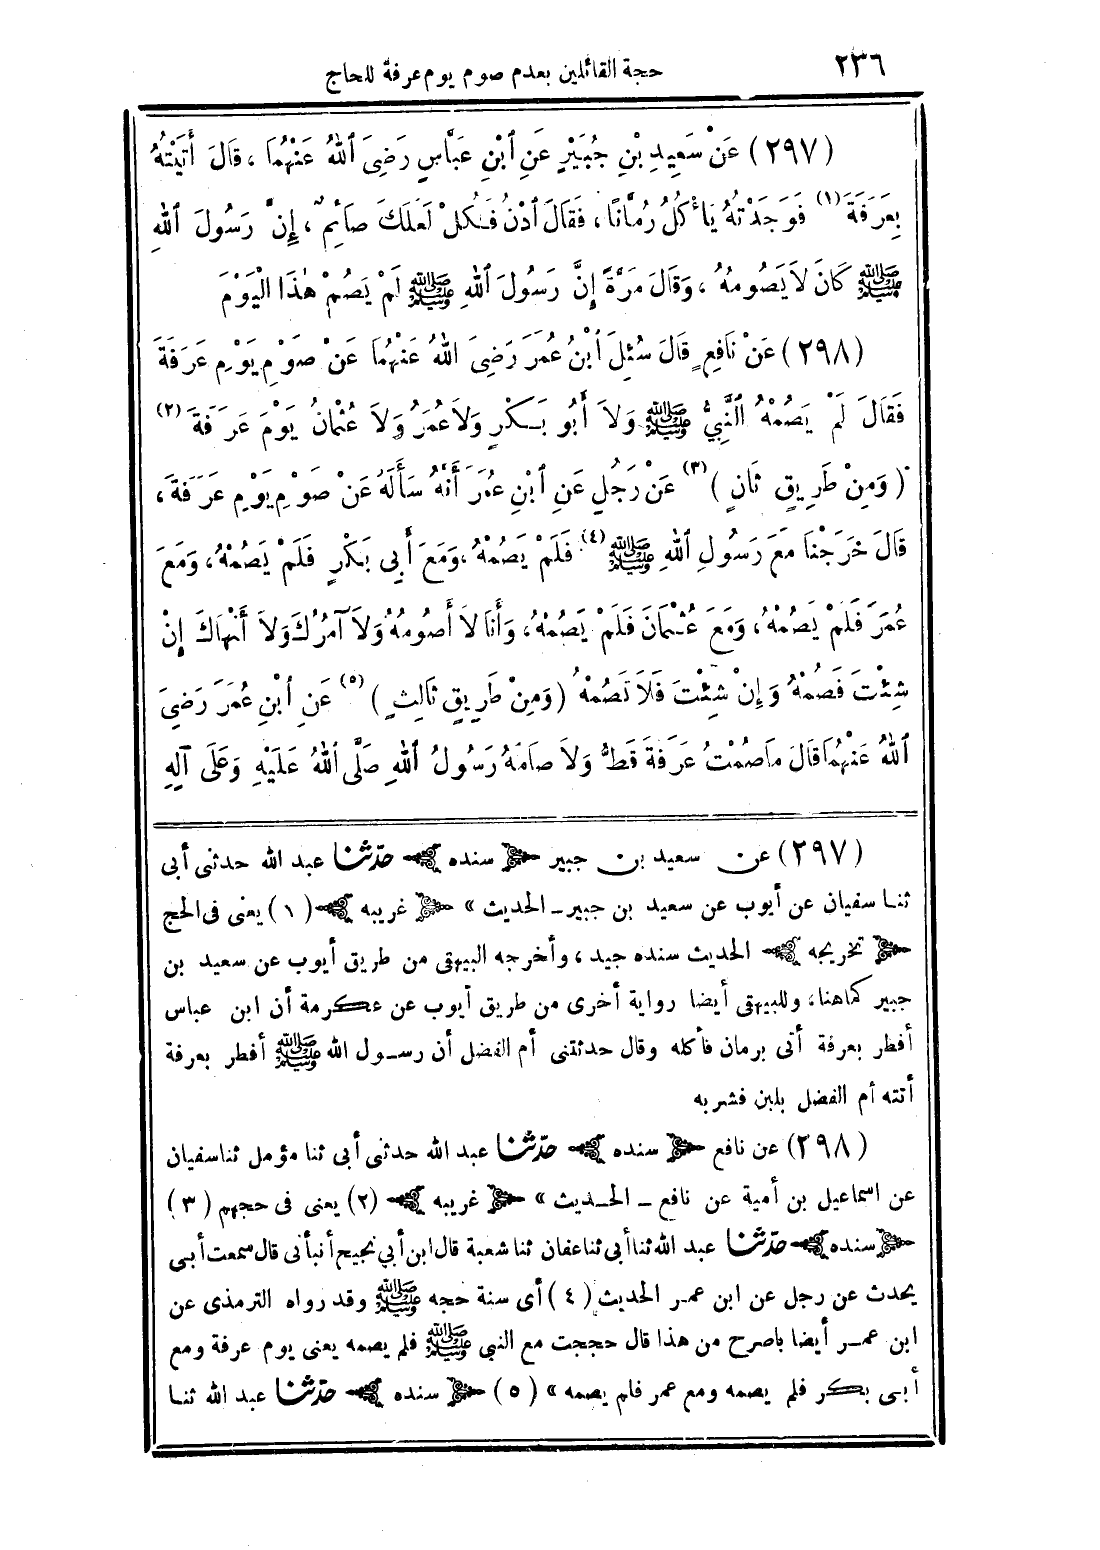 ٢٣٦
حجة القائلين بعدم صوم يوم عرفة للحاج
(٢٩٧) عَنْ سَعِيدِ بْنِ جُبَيْرٍ عَنِ ٱبْنِ عَبَّاسٍ رَضِيَ ٱللهُ عَنْهُمَا ، قَالَ أَتَيْتُهُ
بِعَرَفَةَ (١) فَوَجَدْتُهُ يَأْكُلُ رُمَّانًا ، فَقَالَ ٱدْنُ فَكُلْ لَعَلَّكَ صَائِمٌ ، إِنَّ رَسُولَ ٱللهِ
ﷺ كَانَ لاَ يَصُومُهُ ، وَقَالَ مَرَّةً إِنَّ رَسُولَ ٱللهِ ﷺ لَمْ يَصُمْ هٰذَا الْيَوْمَ
(٢٩٨) عَنْ نَافِعٍ قَالَ سُئِلَ ٱبْنُ عُمَرَ رَضِيَ ٱللهُ عَنْهُمَا عَنْ صَوْمِ يَوْمِ عَرَفَةَ
فَقَالَ لَمْ يَصُمْهُ ٱلنَّبِيُّ ﷺ وَلاَ أَبُو بَكْرٍ وَلاَ عُمَرُ وَلاَ عُثْمَانُ يَوْمَ عَرَفَةَ (٢)
( وَمِنْ طَرِيقٍ ثَانٍ ) (٣) عَنْ رَجُلٍ عَنِ ٱبْنِ عُمَرَ أَنَّهُ سَأَلَهُ عَنْ صَوْمِ يَوْمِ عَرَفَةَ ،
قَالَ خَرَجْنَا مَعَ رَسُولِ ٱللهِ ﷺ (٤) فَلَمْ يَصُمْهُ ، وَمَعَ أَبِي بَكْرٍ فَلَمْ يَصُمْهُ ، وَمَعَ
عُمَرَ فَلَمْ يَصُمْهُ ، وَمَعَ عُثْمَانَ فَلَمْ يَصُمْهُ ، وَأَنَا لاَ أَصُومُهُ وَلاَ آمُرُكَ وَلاَ أَنْهَاكَ إِنْ
شِئْتَ فَصُمْهُ وَإِنْ شِئْتَ فَلاَ تَصُمْهُ ( وَمِنْ طَرِيقٍ ثَالِثٍ ) (٥) عَنِ ٱبْنِ عُمَرَ رَضِيَ
ٱللهُ عَنْهُمَا قَالَ مَا صُمْتُ عَرَفَةَ قَطُّ وَلاَ صَامَهُ رَسُولُ ٱللهِ صَلَّى ٱللهُ عَلَيْهِ وَعَلَى آلِهِ
(٢٩٧) عن سعيد بن جبير ﴿ سنده ﴾ حدّثنا عبد الله حدثني أبي
ثنا سفيان عن أيوب عن سعيد بن جبير ـ الحديث » ﴿ غريبه ﴾ (١) يعنى فى الحج
﴿ تخريجه ﴾ الحديث سنده جيد ، وأخرجه البيهقى من طريق أيوب عن سعيد بن
جبير كما هنا ، وللبيهقى أيضا رواية أخرى من طريق أيوب عن عكرمة أن ابن عباس
أفطر بعرفة أتى برمان فأكله وقال حدثتنى أم الفضل أن رسول الله ﷺ أفطر بعرفة
أتته أم الفضل بلبن فشربه
(٢٩٨) عن نافع ﴿ سنده ﴾ حدّثنا عبد الله حدثني أبى ثنا مؤمل ثنا سفيان
عن اسماعيل بن أمية عن نافع ـ الحديث » ﴿ غريبه ﴾ (٢) يعنى فى حجهم (٣)
﴿ سنده ﴾ حدّثنا عبد الله ثنا أبى ثنا عفان ثنا شعبة قال ابن أبي نجيح أنبأنى قال سمعت أبى
يحدث عن رجل عن ابن عمر الحديث (٤) أى سنة حجه ﷺ وقد رواه الترمذى عن
ابن عمر أيضا باصرح من هذا قال حججت مع النبى ﷺ فلم يصمه يعنى يوم عرفة ومع
أبى بكر فلم يصمه ومع عمر فلم يصمه » (٥) ﴿ سنده ﴾ حدّثنا عبد الله ثنا